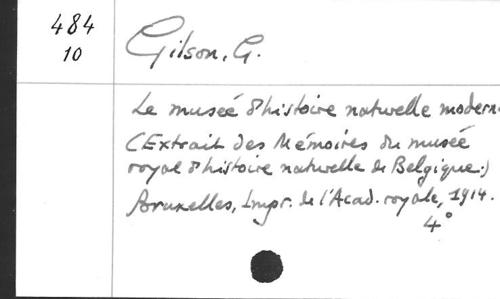 484
10
Gilson, G.
Le musée d'histoire naturelle modern
(Extrait des Mémoires du musée
royal d'histoire naturelle de Belgique.)
Bruxelles, Impr. de l'Acad. royale, 1914.
4°